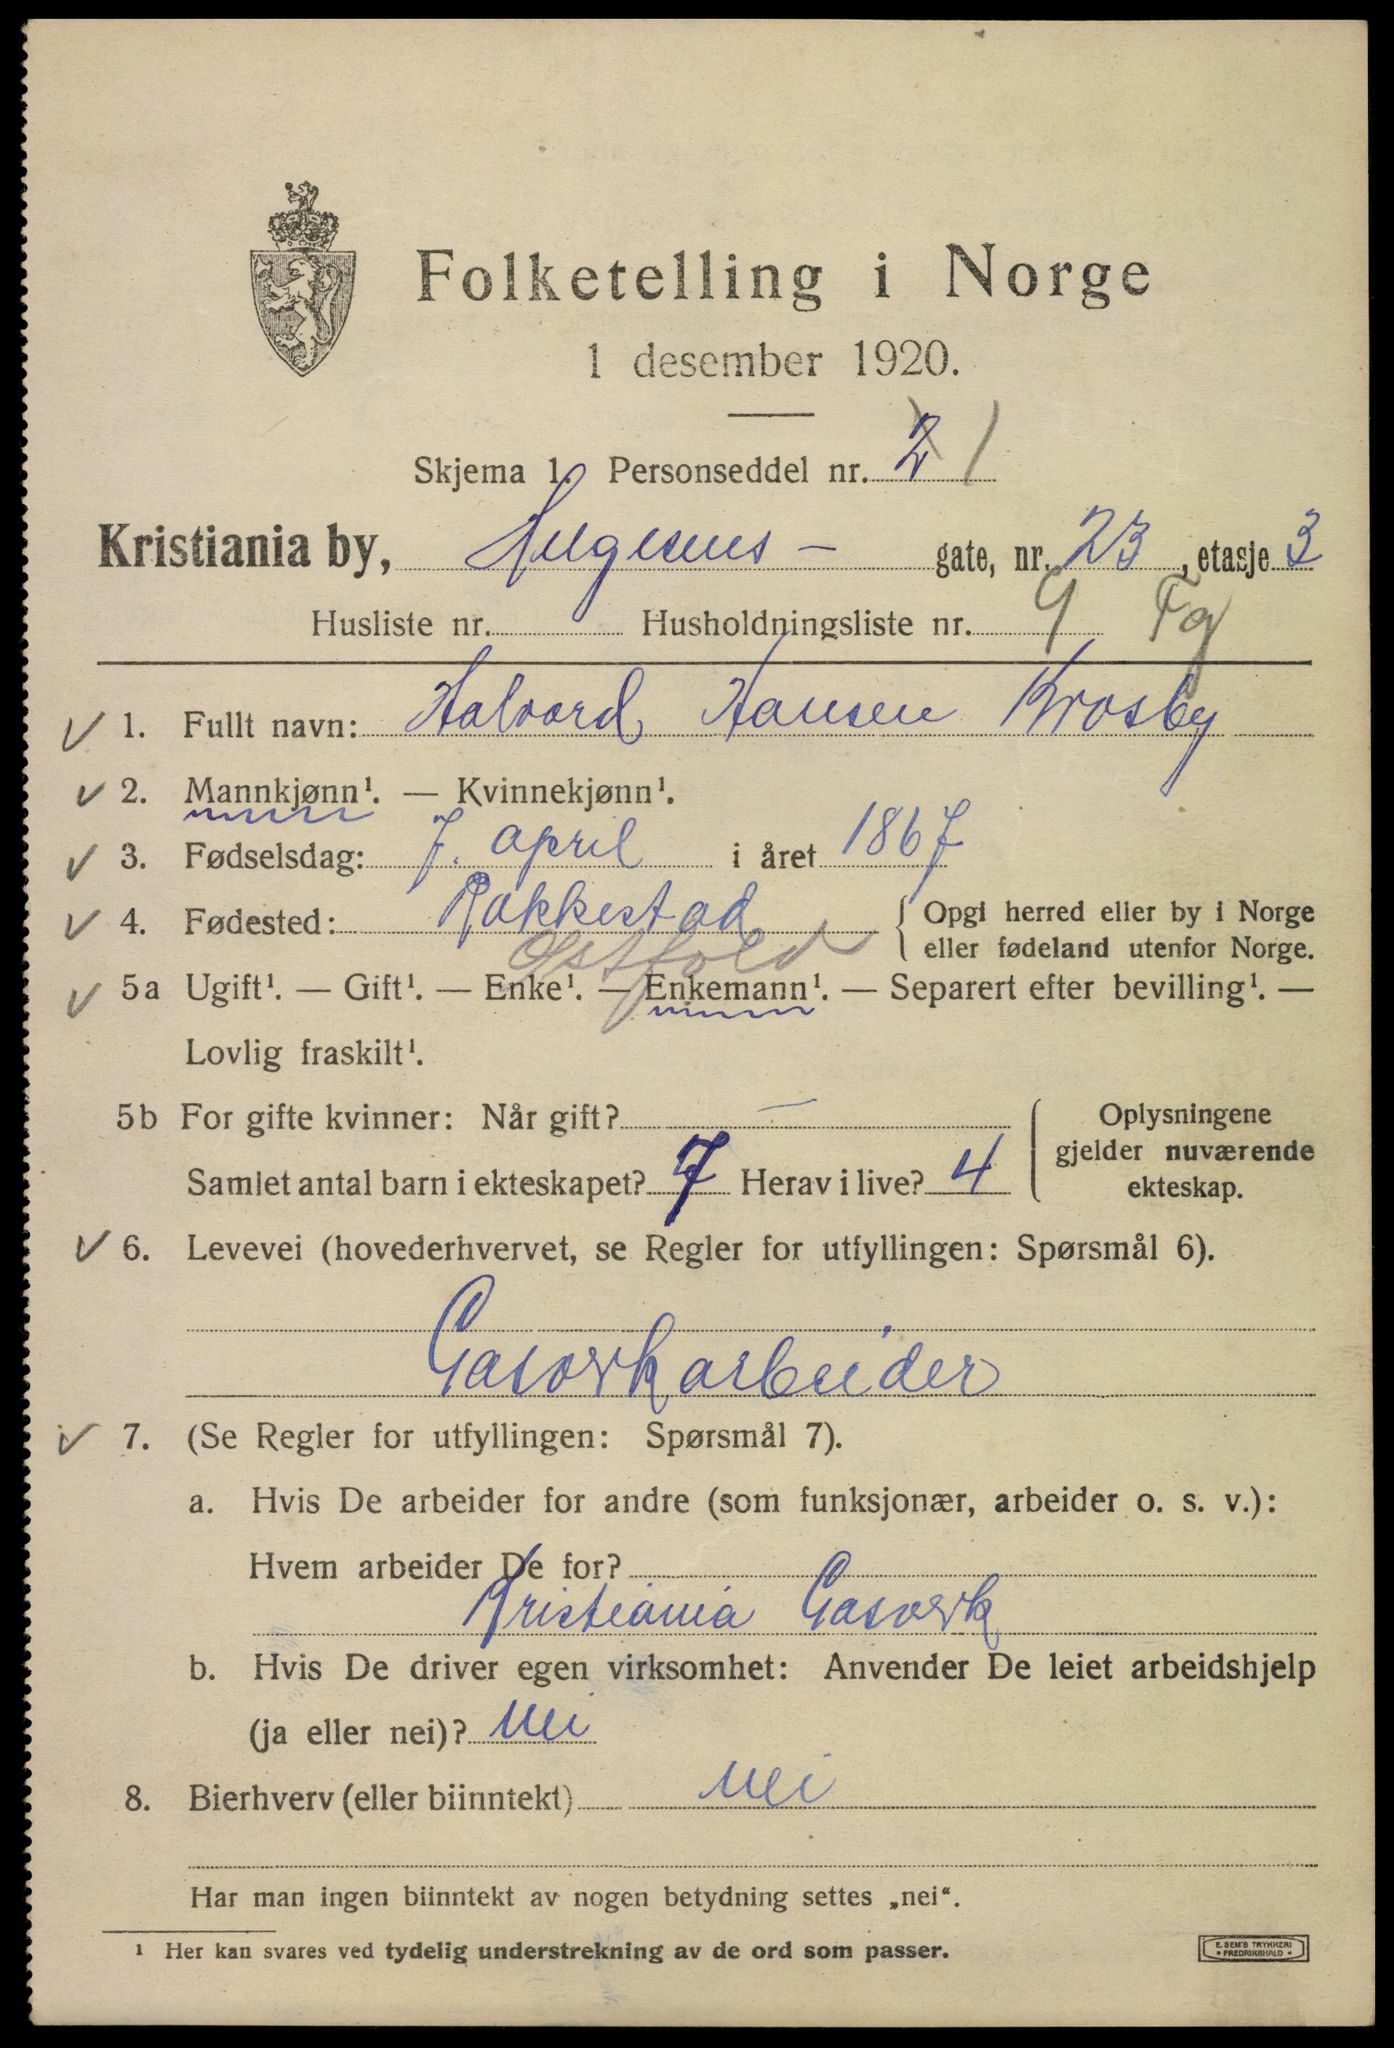 Folketelling i Norge
1 desember 1920.
Skjema 1. Personseddel nr. 2 1
Kristiania by, Helgesens - gate, nr. 23, etasje 3
Husliste nr. Husholdningsliste nr. 9 Fg
1. Fullt navn: Halvard Hansen Krosby
2. Mannkjønn¹. — Kvinnekjønn¹.
3. Fødselsdag: 7. april i året 1867
4. Fødested: Rakkestad { Opgi herred eller by i Norge
Østfold eller fødeland utenfor Norge.
5a Ugift¹. — Gift¹. — Enke¹. — Enkemann¹. — Separert efter bevilling¹. —
Lovlig fraskilt¹.
5b For gifte kvinner: Når gift? — { Oplysningene
gjelder nuværende
Samlet antal barn i ekteskapet? 7 Herav i live? 4 ekteskap.
6. Levevei (hovederhvervet, se Regler for utfyllingen: Spørsmål 6).
Gasverkarbeider
7. (Se Regler for utfyllingen: Spørsmål 7).
a. Hvis De arbeider for andre (som funksjonær, arbeider o. s. v.):
Hvem arbeider De for?
Kristiania Gasverk
b. Hvis De driver egen virksomhet: Anvender De leiet arbeidshjelp
(ja eller nei)? Nei
8. Bierhverv (eller biinntekt) Nei
Har man ingen biinntekt av nogen betydning settes „nei“.
¹ Her kan svares ved tydelig understrekning av de ord som passer.
E. SEM'S TRYKKERI
FREDRIKSHALD